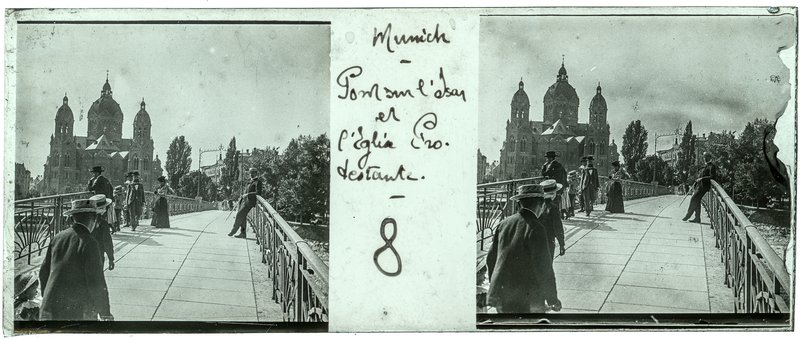 Munich
-
Pont sur l'Isar
et
l'Église Pro-
testante.
-
8